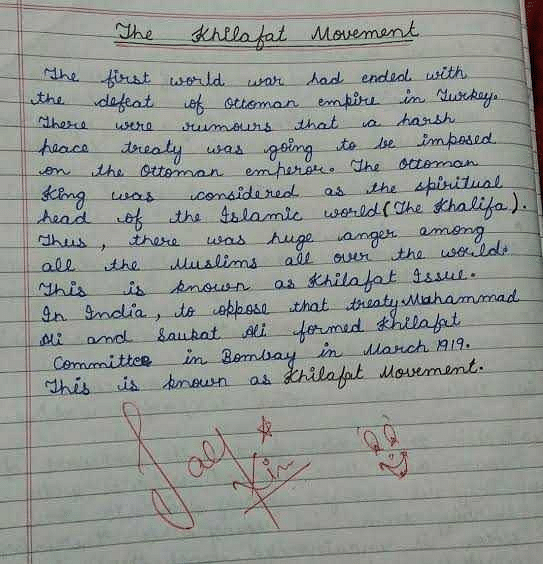 The Khilafat Movement
The first world war had ended with
the defeat of ottoman empire in Turkey.
There were rumours that a harsh
peace treaty was going to be imposed
on the Ottoman emperor. The Ottoman
King was considered as the spiritual
head of the Islamic world (The Khalifa).
Thus, there was huge anger among
all the Muslims all over the world.
This is known as Khilafat Issue.
In India, to oppose that treaty Muhammad
Ali and Saukat Ali formed Khilafat
Committee in Bombay in March 1919.
This is known as Khilafat Movement.